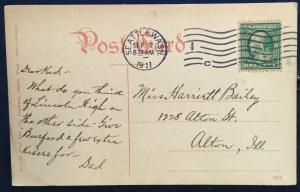 Post Card
SEATTLE, WASH.
SEP 2
8 30 AM
1911
Dear Kid -
What do you think
of Lincoln High on
the other side - Give
Burford a few extra
kisses for -
Dad
Miss Harriett Bailey
1228 Alton St.
Alton, Ill